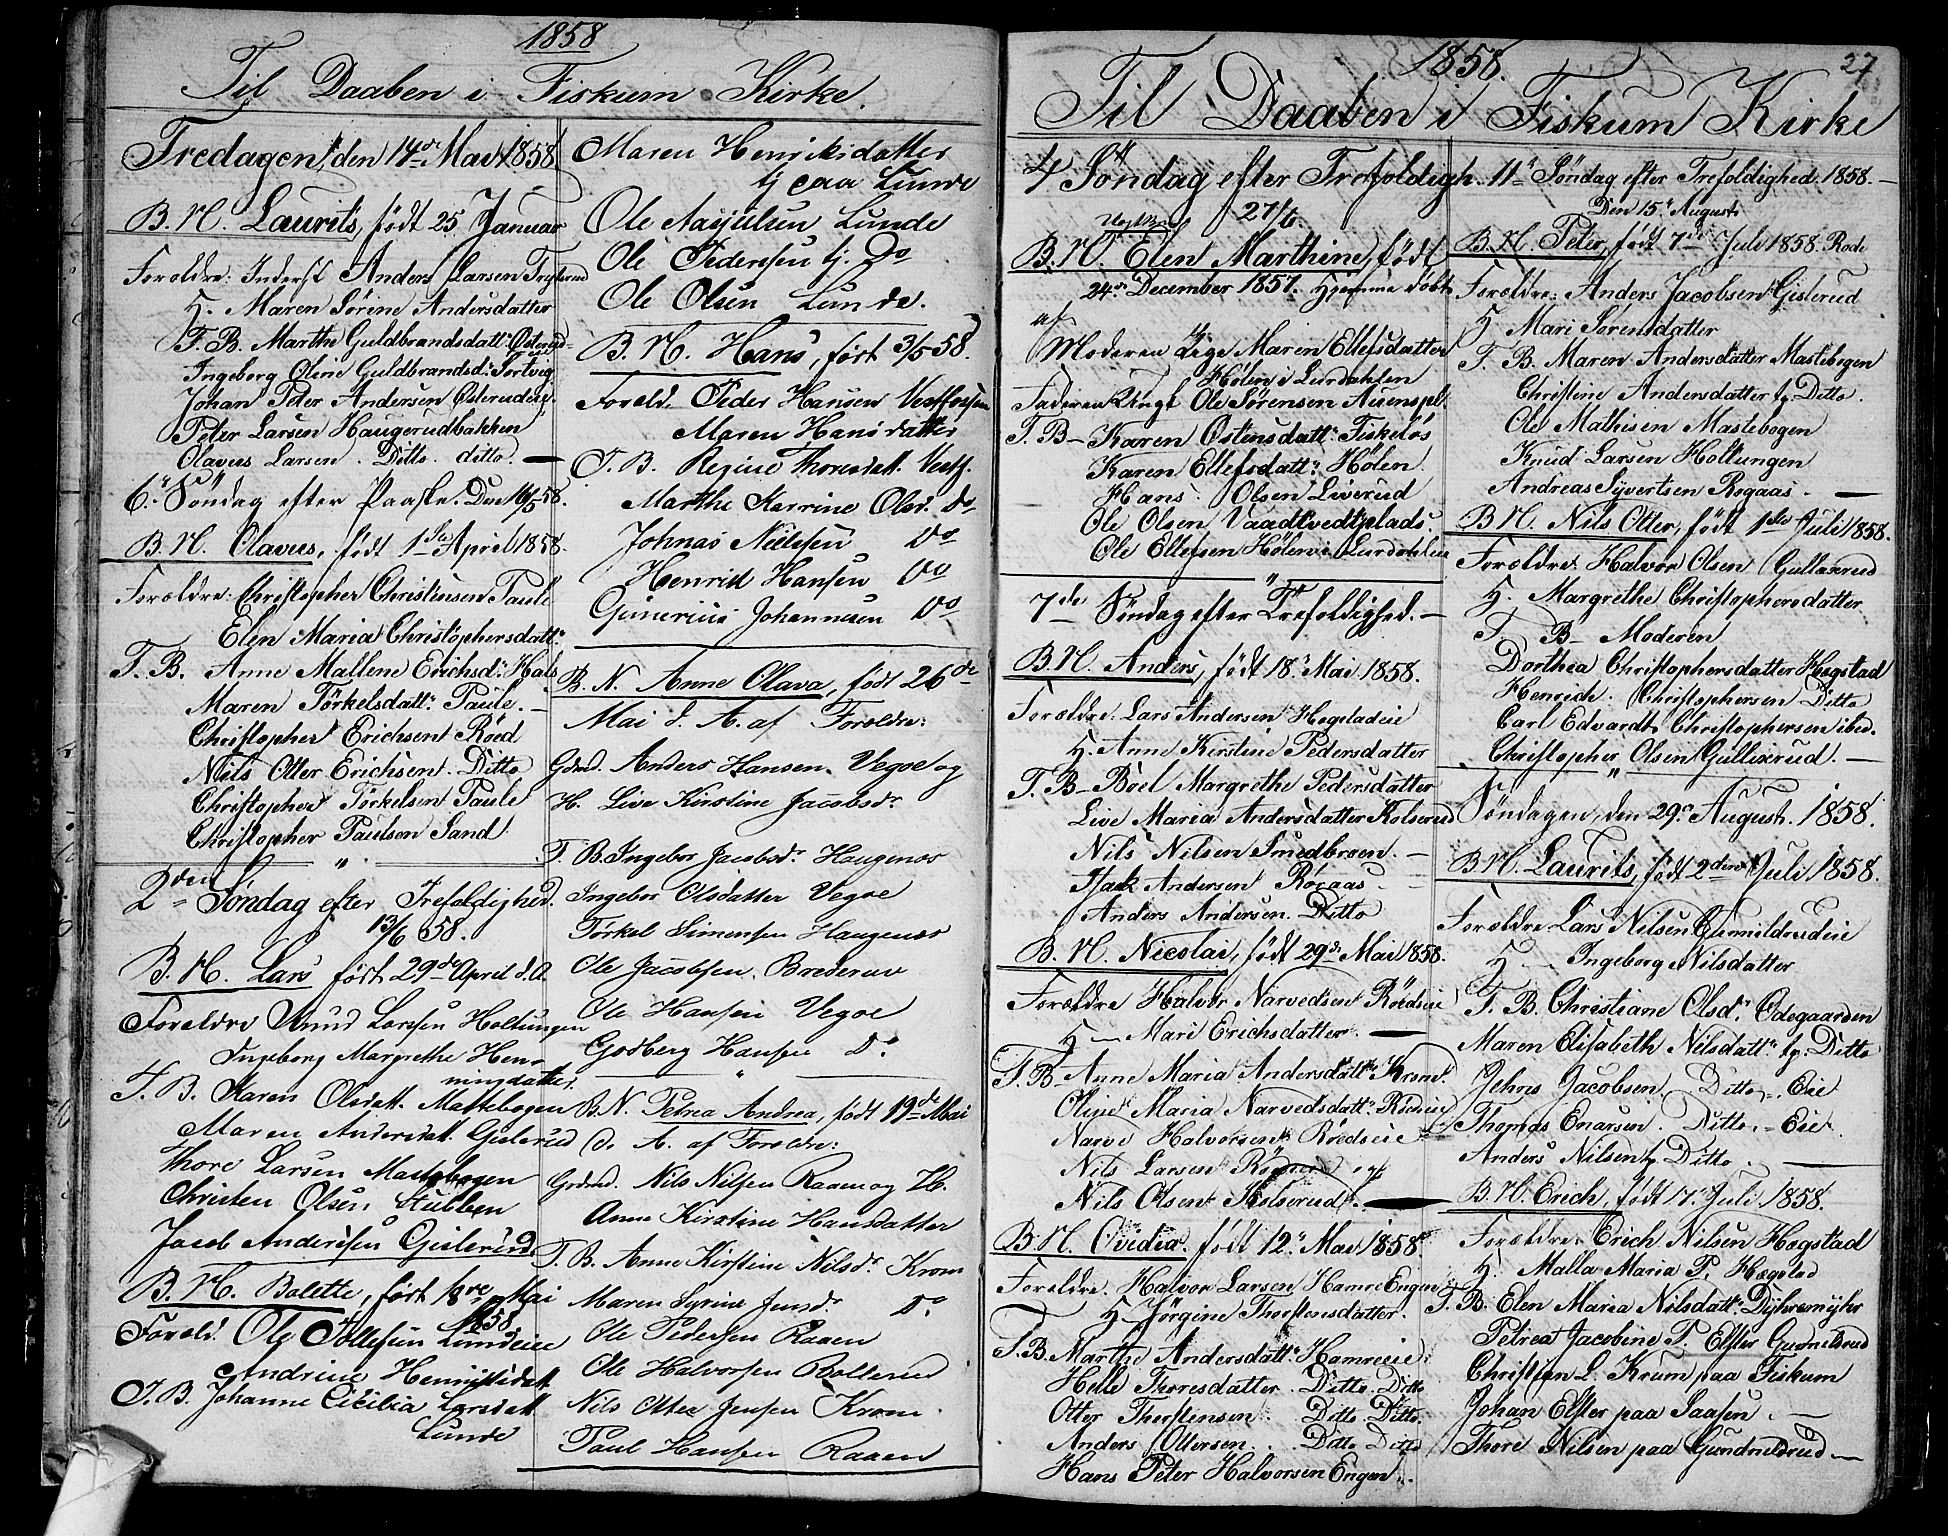 1858
Til Daaben i Fiskum Kirke.
Fredagen, den 14de Mai 1858
B. N. Laurits, født 25 Januar
Foreldre: Inderst Anders Larsen
H. Maren Sørene Andersdatter
F. B. Marthe Guldbrandsdatt:
Ingeborg Oline Guldbrandsd:
Johan Peter Andersen
Peter Larsen Haugerudbakken
Olavus Larsen. Ditto. ditto.
6te Søndag efter Paaske. Den 16/5 58.
B. N. Olavus, født 1ste April 1858.
Forældre: Christopher Christensen Paule
Elen Maria Christophersdatt:
F. B. Anne Mallene Erichsd: Hals
Maren Törkelsdatt: Paule.
Christopher Erichsen Röed
Nils Otter Erichsen. Ditto
Christopher Törkelsen Paule
Christopher Paulsen Sand.
2den Søndag efter Trefoldighed.
13/6 58.
B. N. Lars født 29de April d. A.
Foreldre Knud Larsen Holtungen
Ingeborg Margrethe Hen-
ningdatter
F. B. Karen Olsdatt. Mastebogen
Maren Andersdatt. Gislerud
Thore Larsen Mastebogen
Christen Olsen Stubben
Jacob Andersen Gislerud
B. N. Bolette, født 18de Mai
1858
Foreld. Ole Tollefsen Lundeeie
Andrine Henriksdatt
F. B. Johanne Cicilia Larsdatt
Lunde
Maren Henriksdatter
tj paa Lunde
Ole Lunde
Ole Pedersen tj. Do
Ole Olsen Lunde.
B. N. Hans, født 3/5 58.
Foreld. Peder Hansen Vestfossen
Maren Hansdatter
F. B. Regine Thoresdatt. Vestf.
Marthe Karrine Olsd. Do
Johnas Nielsen Do
Henrik Hansen Do
Gunerius Johannesen Do
B. N. Anne Olava, født 26de
Mai d. A. af Forældre:
Grdmd. Anders Hansen Vegoe og
H. Live Kirstine Jacobsdr
F. B. Ingebor Jacobsdr Haugenæs
Ingebor Olsdatter Vegoe
Törkel Simensen Haugenæs
Ole Jacobsen Brederav
Ole Hansen Vegoe
Godberg Hansen Do
B. N. Petrea Andrea, født 19de Mai
d. A. af Forældre:
Grdmd. Nils Nilsen Raaen og H.
Anne Kirstine Hansdatter
F. B. Anne Kirstine Nilsdr Krom
Maren Syrine Jensdr Do
Ole Pedersen Raaen
Ole Halvorsen Bollerud
Nils Otter Jensen Krom
Paul Hansen Raaen
1858.
27
Til Daaben i Fiskum Kirke
4 Søndag efter Trefoldigh.
27/6.
B. N. Elen Marthine, født
24de December 1857. Hjemme døbt
af
Moderen Pige Maren Ellefsdatter
Hölen i Lurdahlen
Faderen Ungk Ole Sörensen
F. B. Karen Ostensdatt: Fiskelös
Karen Ellefsdatt: Hölen
Hans Olsen Liverud
Ole Olsen Vaadtvedtplads.
Ole Ellefsen Hölen i Lurdahlen
7de Søndag efter Trefoldighed.
B. N. Anders, født 18. Mai 1858.
Forældre: Lars Andersen Hegstadeie
H. Anne Kirstine Pedersdatter
F. B. Boel Margrethe Pedersdatter
Live Maria Andersdatter Kolserud
Nils Nilsen Smedbroen.
Isak Andersen Rögaas
Anders Andersen. Ditto
B. N. Nicolai, født 29de Mai 1858.
Forældre Halvor Narvedsen Röedseie
H. Mari Erichsdatter.
F. B. Anne Maria Andersdatt: Krom.
Oline Maria Narvedsdatt: Rödseie
Narve Halvorsen Röedseie
Nils Larsen
Nils Olsen Kolserud.
B. N. Ovidia. født 12. Mai 1858
Foreldre. Halvor Larsen Hamre Engen
H. Jörgine Thorstensdatter.
F. B. Marthe Andersdatt: Hamreeie
Helle Thorresdatter Ditto Ditto
Otter Thorstensen Ditto Ditto.
Anders Ottersen. Ditto Ditto
Hans Peter Halvorsen Engen.
11te Søndag efter Trefoldighed 1858.
Den 15de August
B. N. Peter, født 7de Juli 1858.
Forældre: Anders Jacobsen Gislerud
H Mari Sørensdatter
F. B. Maren Andersdatter Mastebogen
Christine Andersdatter tj. Ditto.
Ole Mathisen Mastebogen
Knud Larsen Holtungen
Andreas Syvertsen Rogaas.
B. N. Nils Otter, født 1ste Juli 1858.
Forældre: Halvor Olsen Gullixrud
H. Margrethe Christophersdatter
F. B. Moderen
Dorthea Christophersdatter Hægstad
Henrich Christophersen Ditto
Carl Edvardt Christophersen ibed.
Christopher Olsen Gullixrud.
Søndagen, den 29de August. 1858.
B. N. Laurits, født 2den Juli 1858.
Forældre Lars Nilsen
H Ingeborg Nilsdatter
F. B. Christiane Olsd: Ödegaarden
Maren Elisabeth Nilsdatt: tj. Ditto
Johns Jacobsen. Ditto Eie
Thomas Enarsen. Ditto Eie.
Anders Nilsen tj. Ditto
B. N. Erich, født 17. Juli 1858.
Forældre. Erich Nilsen Hægstad
H. Malla Maria P. Hægstad
F. B. Elen Maria Nilsdatt:
Petrea Jacobine P. Elster Gundhildrud
Christian L. Krum paa Fiskum
Johan Elster paa Saasen.
Thore Nilsen paa Gundhildrud